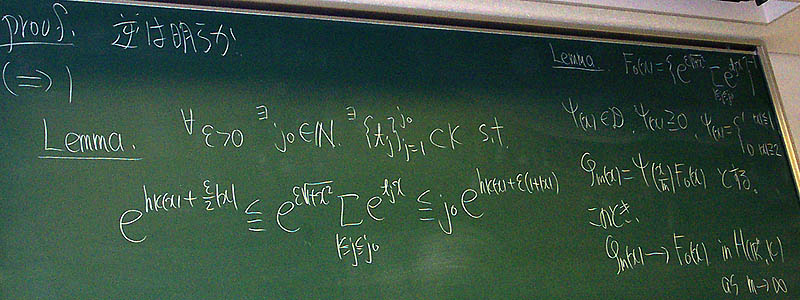 proof. 逆は明らか.
(⇒)
Lemma. ∀ε>0 ∃j₀∈ℕ. ∃{t_j}_{j=1}^{j₀}⊂K s.t.
e^{h_K(x)+ε/2|x|} ≦ e^{ε√(1+x²)} Σ_{1≤j≤j₀} e^{t_j x} ≦ j₀e^{h_K(x)+ε(1+|x|)}
Lemma. F₀(x)={e^{ε√(1+x²)} Σ_{1≤j≤j₀} e^{t_j x}}^{-1}
ψ(x)∈D, ψ(x)≧0, ψ(x)={1 |x|≤1, 0 |x|≥2
φ_m(x)=ψ(x/m)F₀(x) とする.
このとき.
φ_m(x)→F₀(x) in H(ℝⁿ,K)
as m→∞